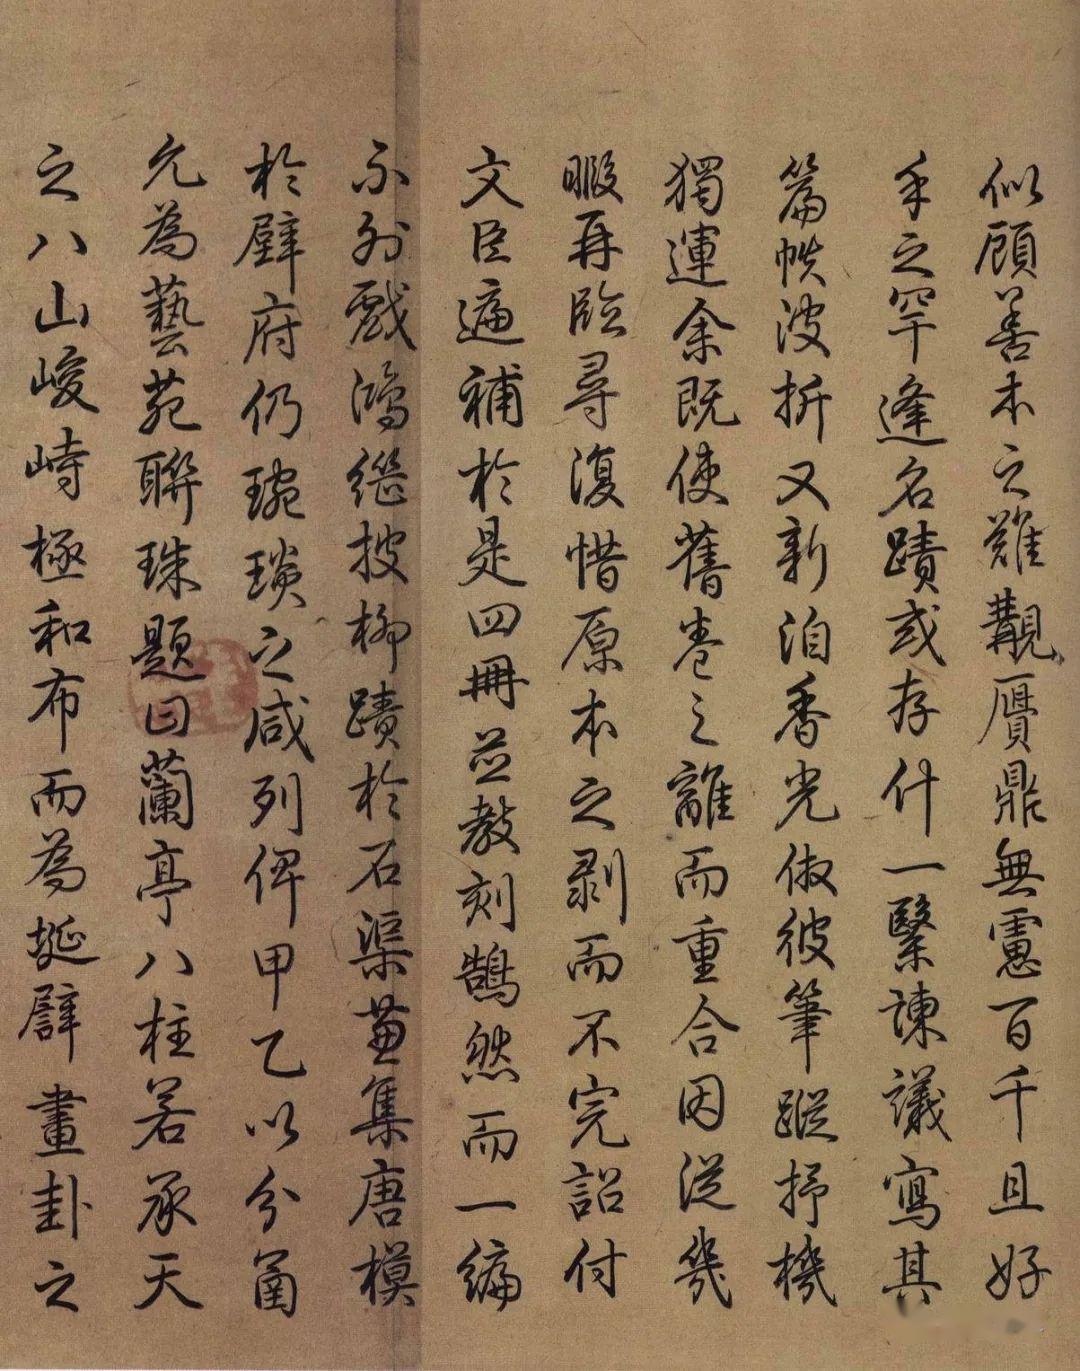 似顧善本之難觀贗鼎無慮百千且好
手之罕逢名蹟或存什一繄諫議寫其
篇帙波折又新洎香光倣彼筆蹤抒機
獨運余既使舊卷之離而重合因從幾
暇再臨尋復惜原本之剥而不完詔付
文臣遍補於是四冊並教刻鵠然而一編
不列戲鴻繼披柳蹟於石渠兼集唐模
於壁府仍琬琰之咸列俾甲乙以分函
允為藝苑聯珠題曰蘭亭八柱若承天
之八山峻峙極和布而為埏擘畫卦之